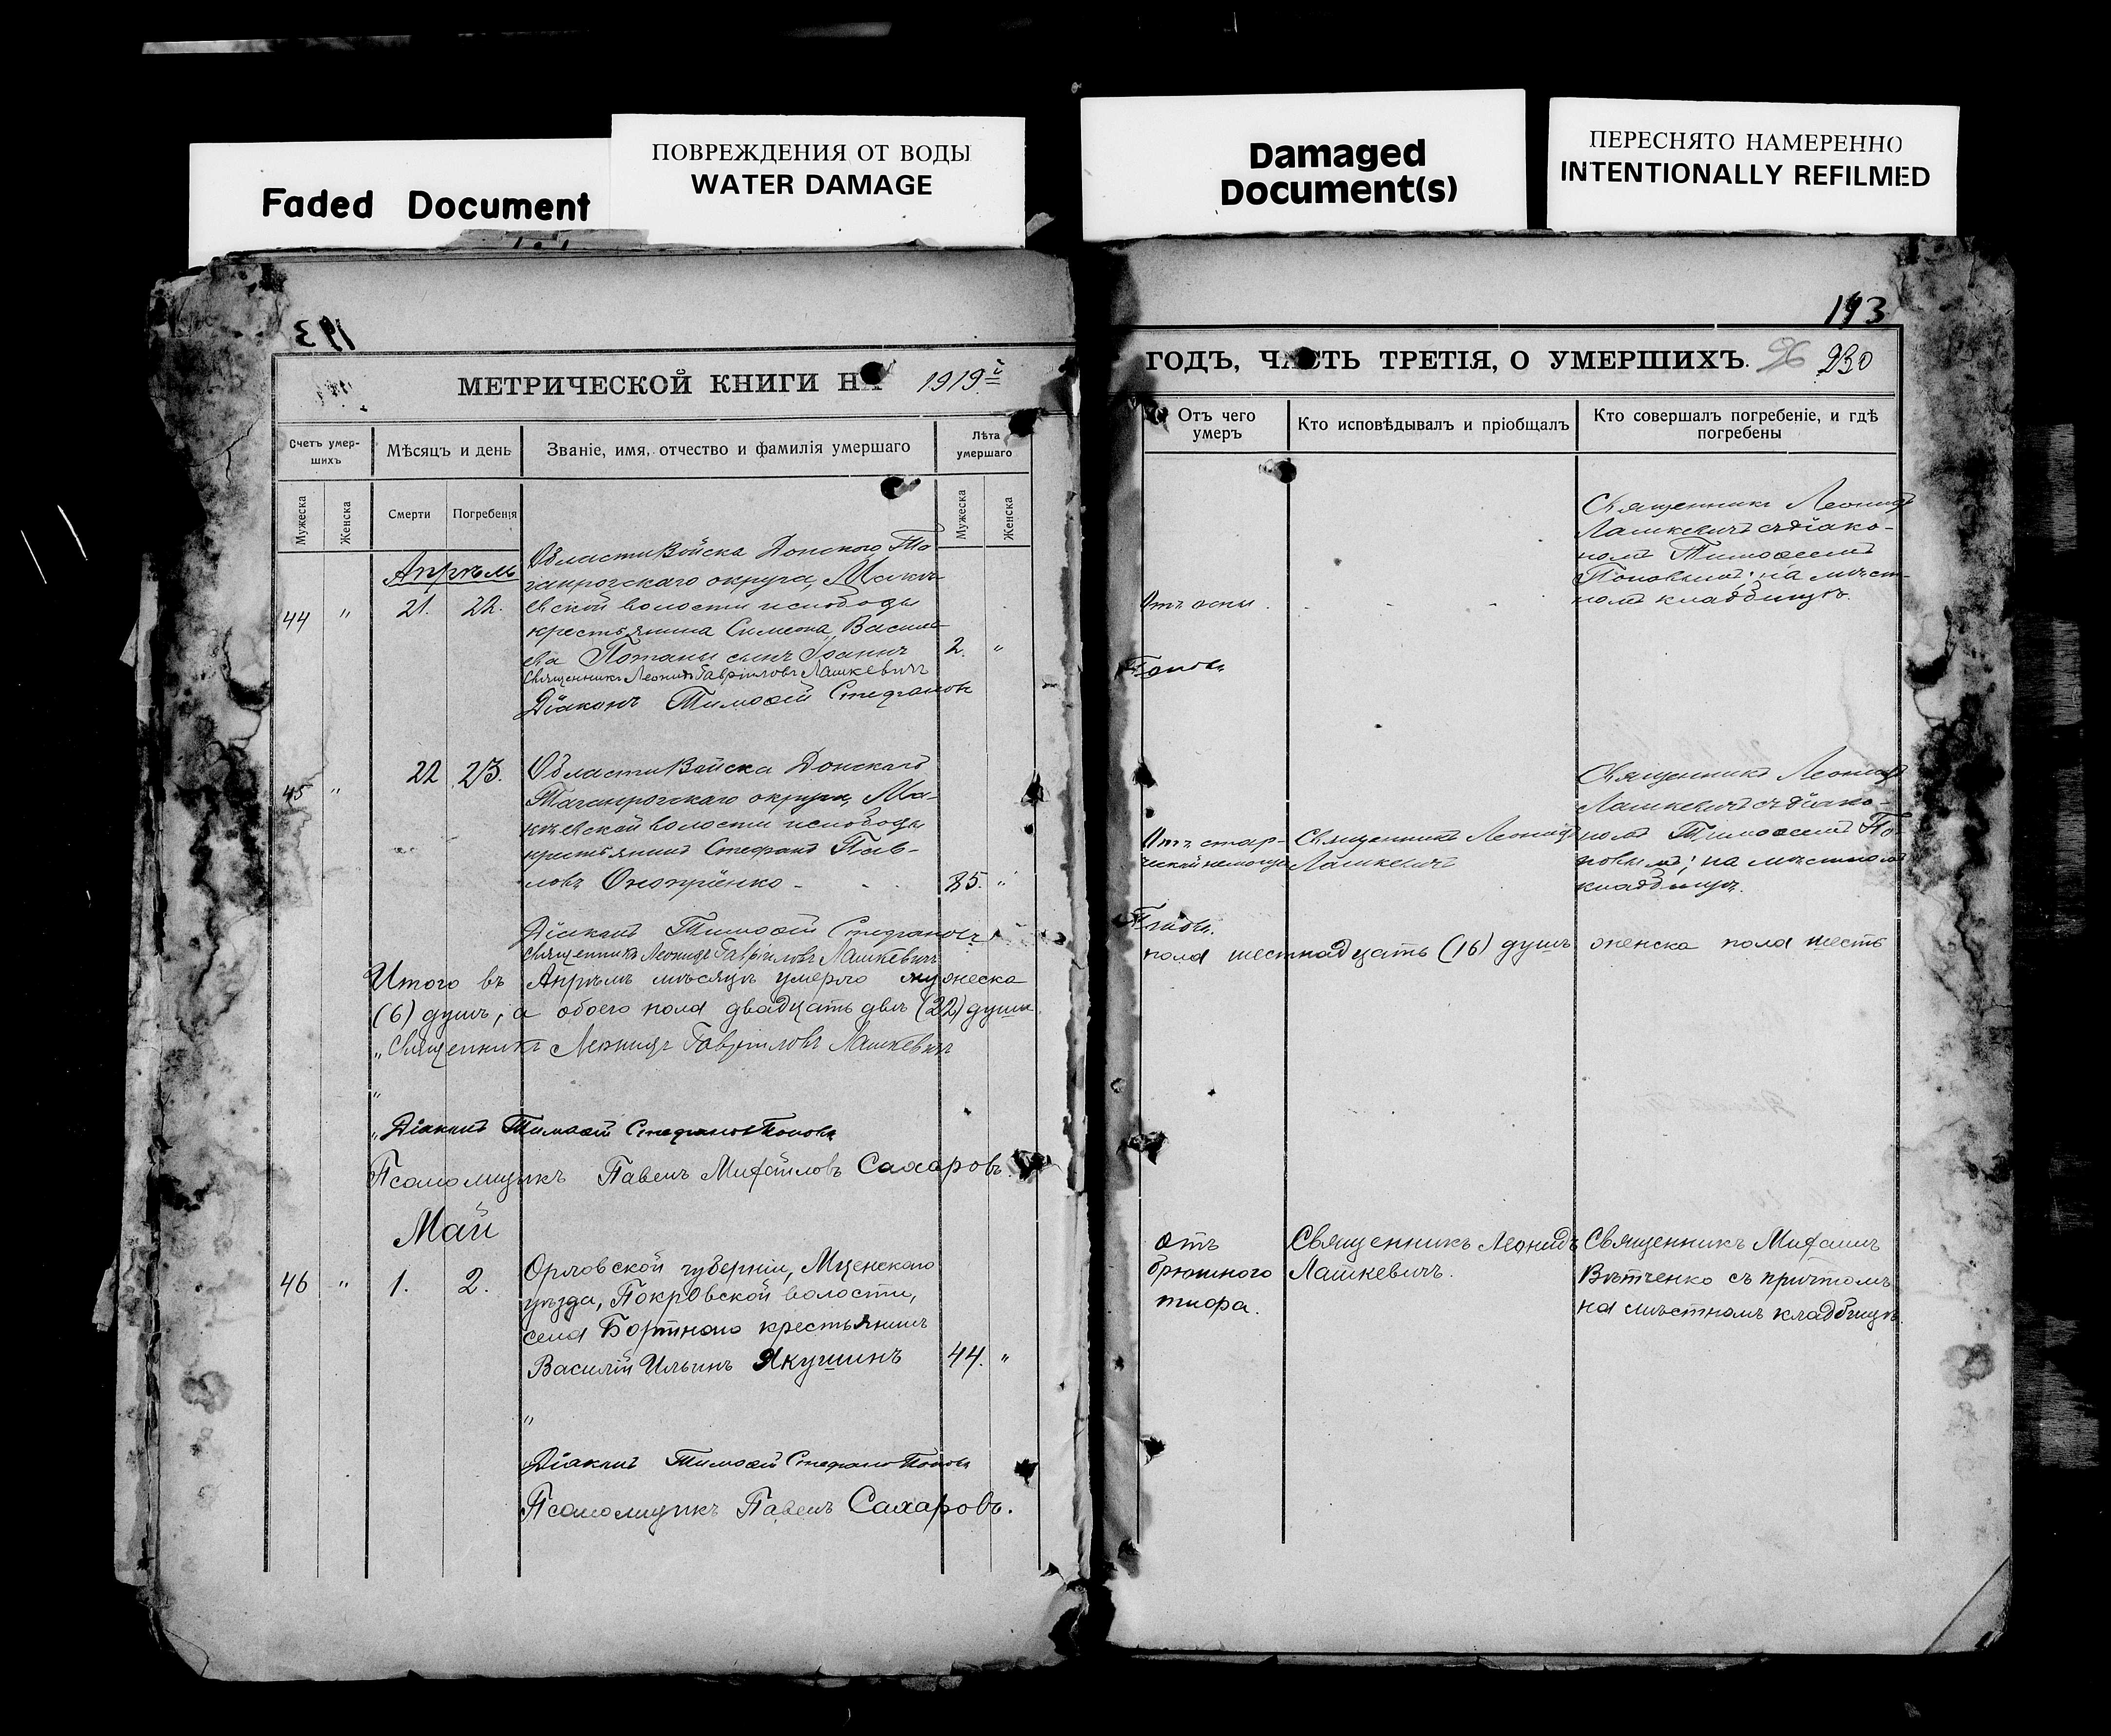 Faded Document
ПОВРЕЖДЕНИЯ ОТ ВОДЫ
WATER DAMAGE
Damaged
Document(s)
ПЕРЕСНЯТО НАМЕРЕННО
INTENTIONALLY REFILMED
193
МЕТРИЧЕСКОЙ КНИГИ НА 1919й
Счетъ умер-
шихъ
Мѣсяцъ и день
Званіе, имя, отчество и фамилія умершаго
Лѣта
умершаго
Мужеска
Женска
Смерти
Погребенія
Мужеска
Женска
Апрѣль
44 " 21. 22.
Области Войска Донского Та
ганрогскаго округа, Макѣ-
евской волости и слободы
крестьянина Симеона Василь-
ева Потапы сынъ Іоаннъ 2. "
Священникъ Леонидъ Гавріиловъ Лашкевичъ
Діаконъ Тимоѳей Стефановъ
45 " 22 23.
Области Войска Донскаго
Таганрогскаго округа, Ма-
кѣевской волости и слободы
крестьянинъ Стефанъ Пав-
ловъ 85. "
Діаконъ Тимоѳей Стефановъ
Священникъ Леонидъ Гавріиловъ Лашкевичъ
Итого въ Апрѣлѣ мѣсяцѣ умерло мужеска
(6) душъ, а обоего пола двадцать двѣ (22) души
"Священникъ Леонидъ Гавріиловъ Лашкевичъ
"
"Діаконъ Тимоѳей Стефановъ Поповъ
Псаломщикъ Павелъ Михайловъ Сахаровъ.
Май
46 " 1. 2.
Орловской губерніи, Мценскаго
уѣзда, Покровской волости,
села Бортнаго крестьянинъ
Василій Ильинъ Якушинъ 44. "
"
Діаконъ Тимоѳей Стефановъ Поповъ
Псаломщикъ Павелъ Сахаровъ.
193
ГОДЪ, ЧАСТЬ ТРЕТІЯ, О УМЕРШИХЪ. 96 230
Отъ чего
умеръ
Кто исповѣдывалъ и пріобщалъ
Кто совершалъ погребеніе, и гдѣ
погребены
Отъ оспы
Священникъ Леонидъ
Лашкевичъ съ діако-
номъ Тимоѳеемъ
Поповымъ; на мѣст-
номъ кладбищѣ.
Поповъ
Отъ стар-
ческой немощи
Священникъ Леонидъ
Лашкевичъ
Священникъ Леонидъ
Лашкевичъ съ діако-
номъ Тимоѳеемъ По-
повымъ; на мѣстномъ
кладбищѣ.
Поповъ.
пола шестнадцать (16) душъ женска пола шесть
отъ
брюшного
тифа.
Священникъ Леонидъ
Лашкевичъ.
Священникъ Михаилъ
Вѣтченко съ причтомъ
на мѣстномъ кладбищѣ.